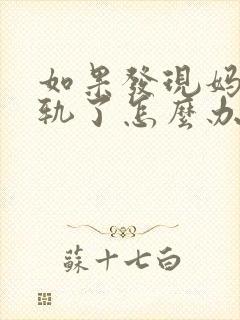 如果發現媽
軌了怎麼办
蘇十七白